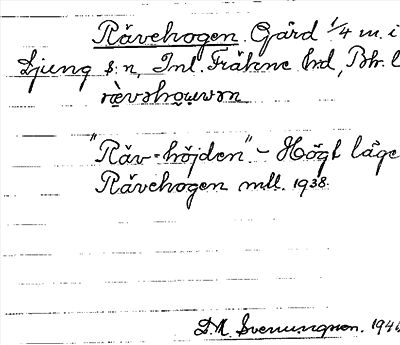 Rävehogen. Gård 1/4 m. i
Ljung s:n, Inl. Fräkne hd, Bh. l
"Räv-höjden". - Högt läge
Rävehogen mtl. 1938.
D.A. Svenungson. 194